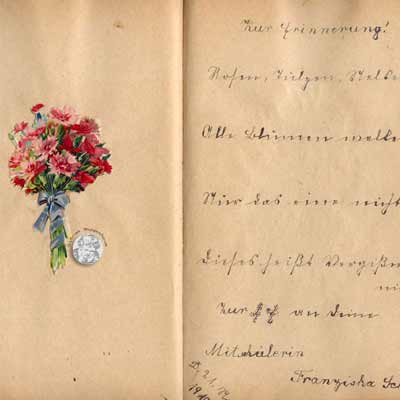 Zur Erinnerung!
Rosen, Tulpen, Nelke
Alle Blumen welke
Nur das eine nicht
Dieses heißt Vergißm
ni
Zur an deine
Mitschülerin
Franziska Sc